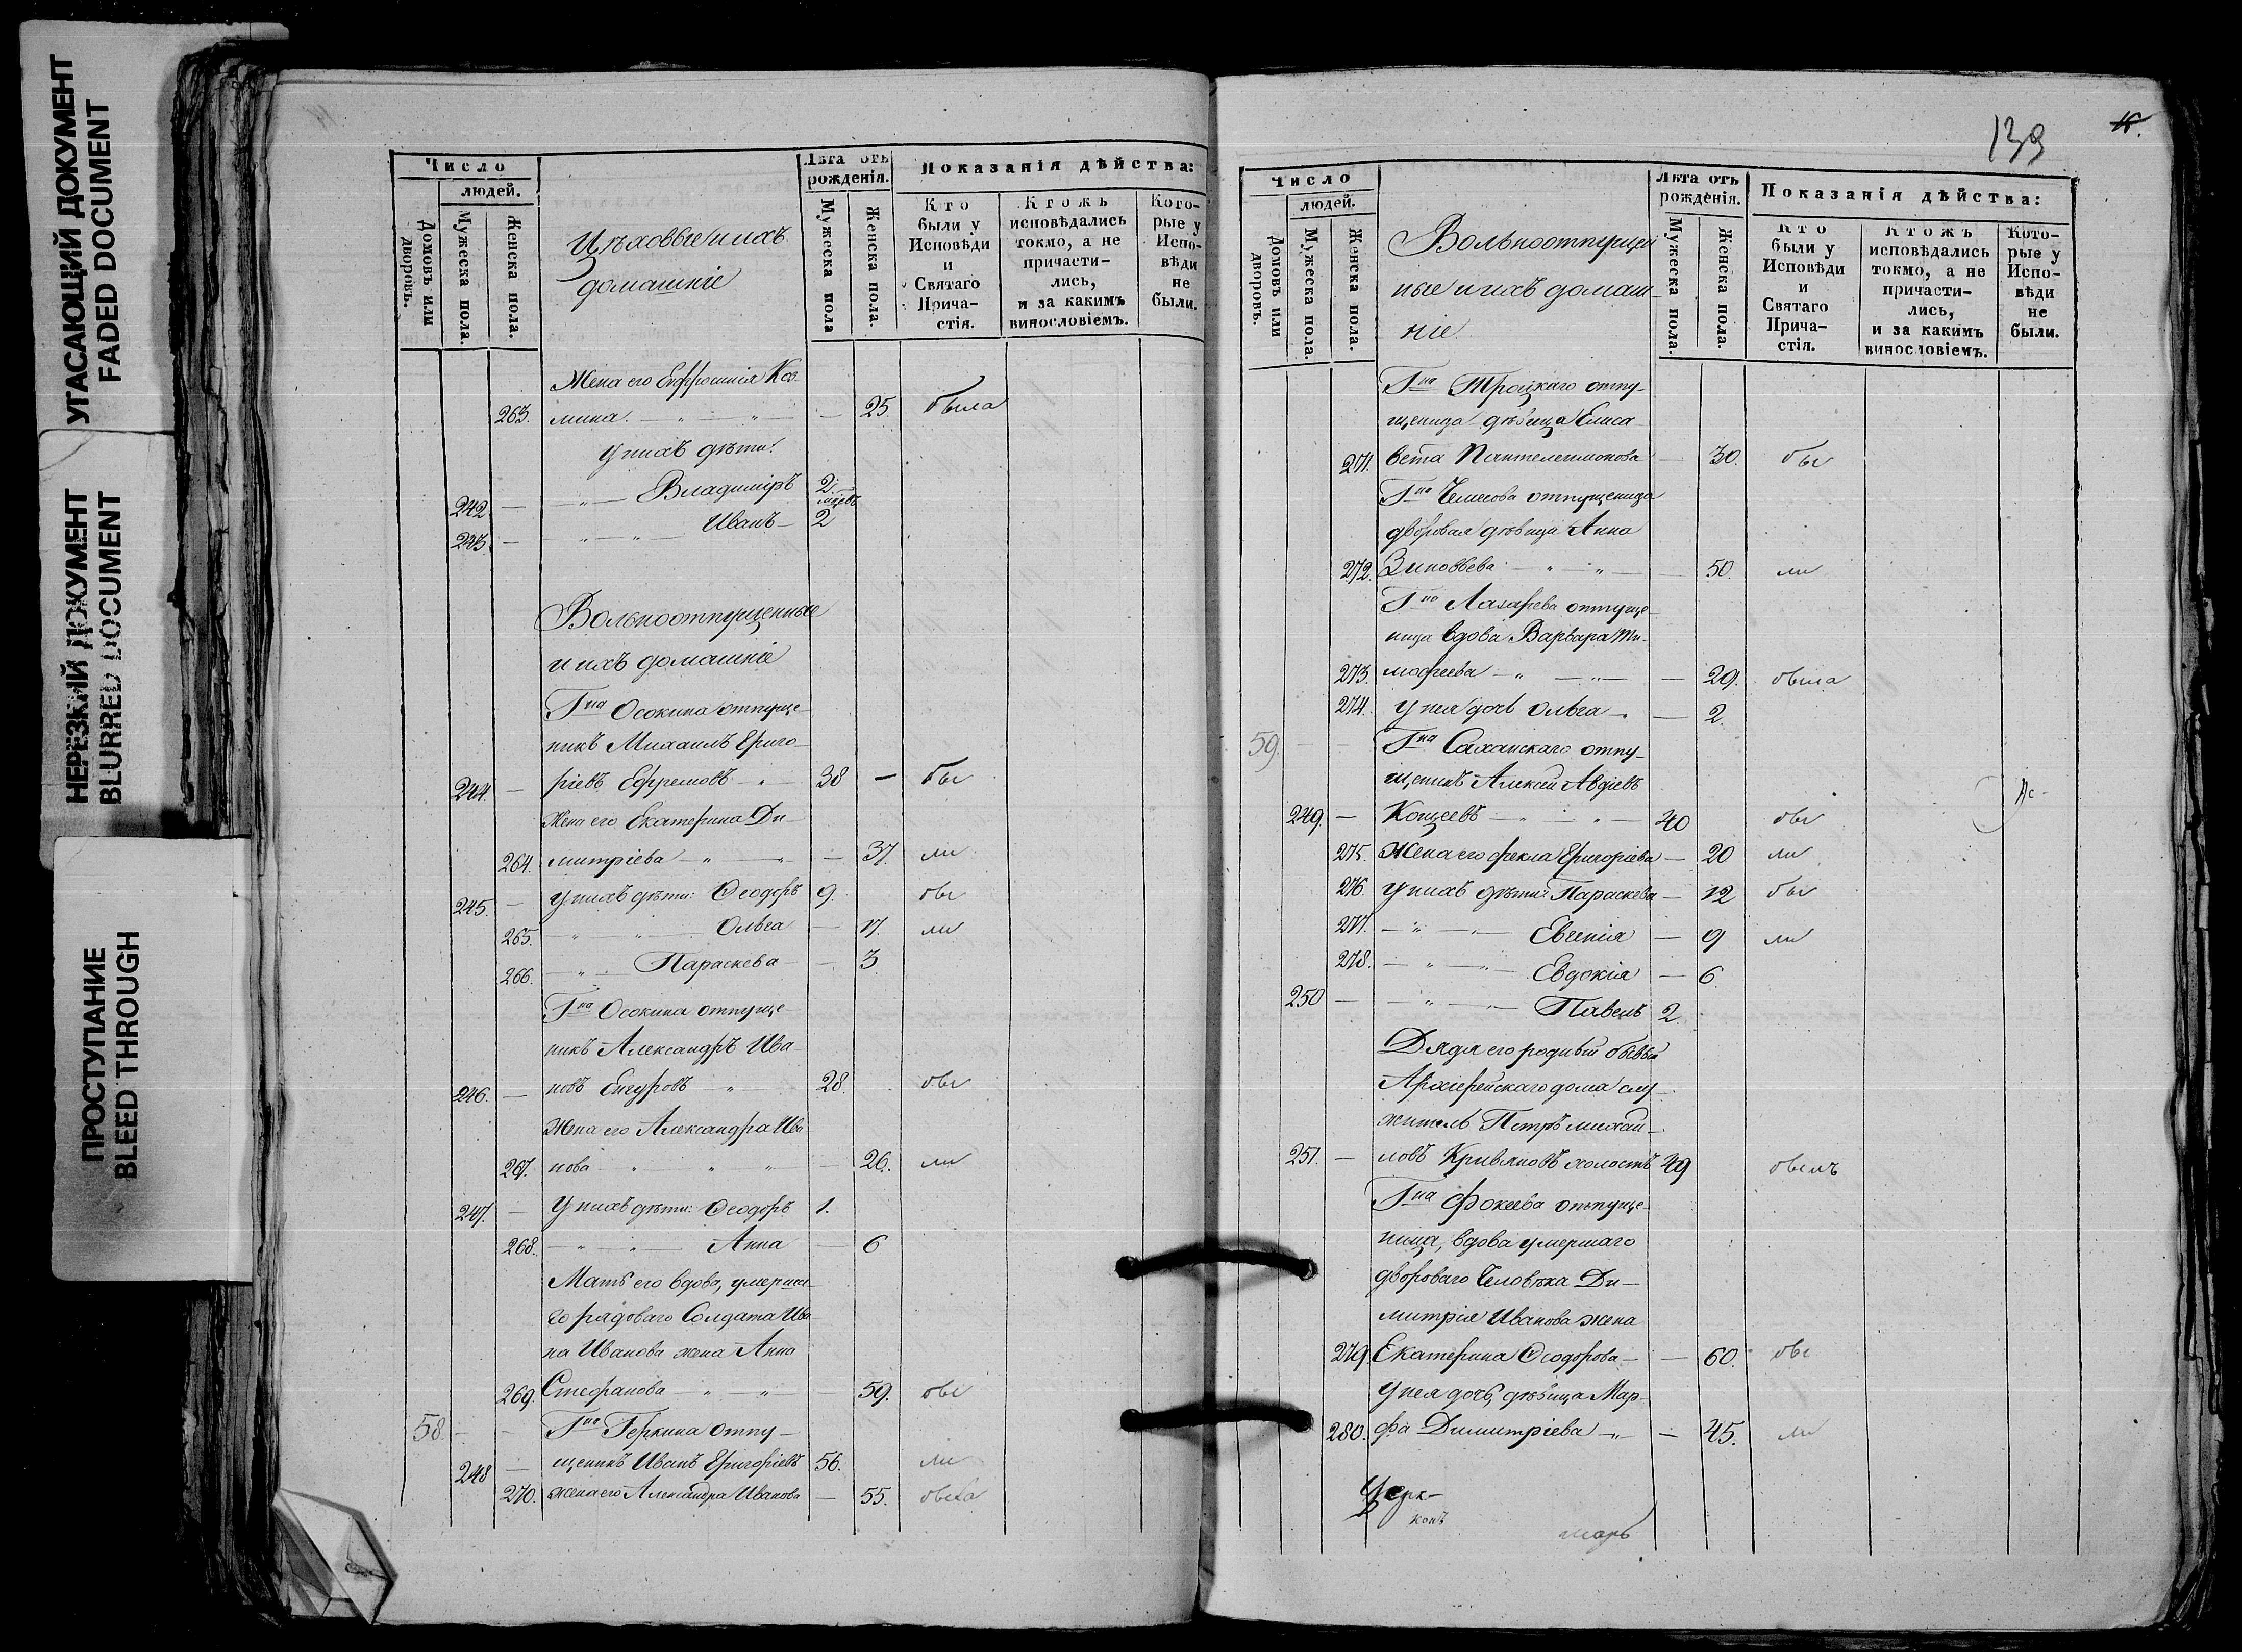 УГАСАЮЩИЙ ДОКУМЕНТ
FADED DOCUMENT
НЕРЕЗКИЙ ДОКУМЕНТ
BLURRED DOCUMENT
ПРОСТУПАНИЕ
BLEED THROUGH
Число
людей.
Домовъ или дворовъ.
Мужеска пола.
Женска пола.
Цѣховые и ихъ
домашніе
Лѣта отъ рожденія.
Мужеска пола
Женска пола.
Показанія дѣйства:
Кто были у Исповѣди и Святаго Прича-стія.
Ктожъ исповѣдались токмо, а не причасти-лись, и за какимъ винословіемъ.
Кото-рые у Испо-вѣди не были.
Жена его Евфросинія Коз-
263. мина — 25. была
у нихъ дѣти:
242 — Владиміръ 2
243. — Иванъ 2
Вольноотпущенные
и ихъ домашніе
Г-на Осокина отпуще-
никъ Михаилъ Григо-
244. — ріевъ Ефремовъ 38 — бы
Жена его Екатерина Ди-
264. митріева — 37. ли
245. — у нихъ дѣти: Ѳеодоръ 9. бы
265. Ольга — 17. ли
266. Параскева — 3
Г-на Осокина отпуще-
никъ Александръ Ива-
246. — новъ 28. бы
Жена его Александра Ива
267. нова — 26. ли
247. — У нихъ дѣти: Ѳеодоръ 1.
268. Анна — 6
Мать его вдова, умерша-
го рядоваго Солдата Ива
на Иванова жена Анна
269. Стефанова — 59. бы
58. Г-на Геркина отпу-
248 — щеникъ Иванъ Григоріевъ 56. ли
270. жена его Александра Иванова — 55. была
139
Число
людей.
Домовъ или дворовъ.
Мужеска пола.
Женска пола.
Вольноотпущен
ные и ихъ домаш-
ніе.
Лѣта отъ рожденія.
Мужеска пола.
Женска пола.
Показанія дѣйства:
Кто были у Исповѣди и Святаго Прича-стія.
Ктожъ исповѣдались токмо, а не причасти-лись, и за какимъ винословіемъ.
Кото-рые у Испо-вѣди не были.
Г-на Троцкаго отпу-
щеница дѣвица Елиса-
271. вета Пантелеимонова — 30. бы
Г-на Чемесова отпущеница
дворовая дѣвица Анна
272. Зиновьева — 50. ли
Г-на Лазарева отпуще-
ница вдова Варвара Ти-
273. мофеева — 29. была
274. у нея дочь Ольга — 2.
59. Г-на Саханскаго отпу-
щеникъ Алексѣй Авдіевъ
249. — Кощеевъ 40 бы
275. Жена его Фекла Григоріева — 20 ли
276. у нихъ дѣти: Параскева — 12 бы
277. Евгенія — 9 ли
278. Евдокія — 6
250 — Павелъ 2.
Дядя его родный бывый
Архіерейскаго дома слу-
житель Петръ Михаи-
251. — ловъ Кривяковъ холостъ 49 былъ
Г-на Фокеева отпуще-
ница, вдова умершаго
двороваго Человѣка Ди-
митрія Иванова жена
279. Екатерина Ѳеодорова — 60. бы
у нея дочь дѣвица Мар-
280. фа Димитріева — 45. ли